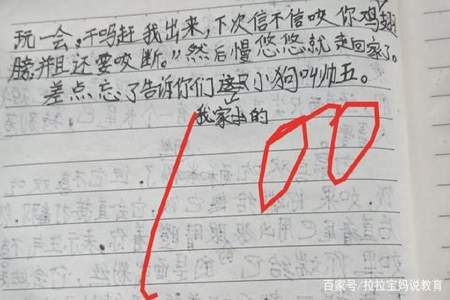 玩一会,干吗赶我出来,下次信不信咬你鸡翅
膀,并且还要咬断。"然后慢悠悠就走回家了。
差点忘了告诉你们这只小狗叫帅五。
我家的
100
百家号/拉拉宝妈说教育